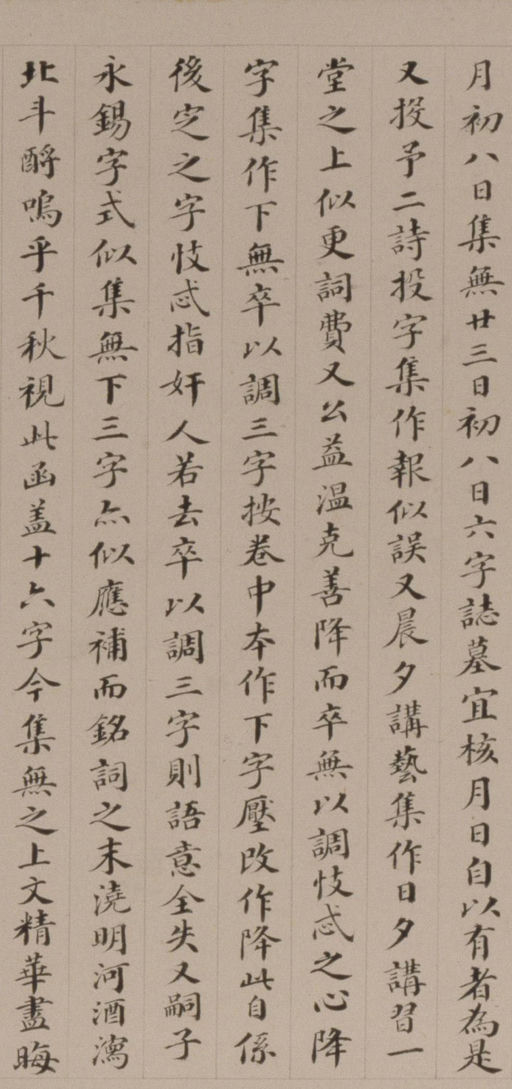 月初八日集無廿三日初八日六字誌墓宜核月日自以有者為是
又投予二詩投字集作報似誤又晨夕講藝集作日夕講習一
堂之上似更詞費又公益温克善降而卒無以調忮忒之心降
字集作下無卒以調三字按卷中本作下字壓改作降此自係
後定之字忮忒指奸人若去卒以調三字則語意全失又嗣子
永錫字式似集無下三字亦似應補而銘詞之末澆明河酒瀉
北斗酹嗚乎千秋視此函盖十六字今集無之上文精華盡晦